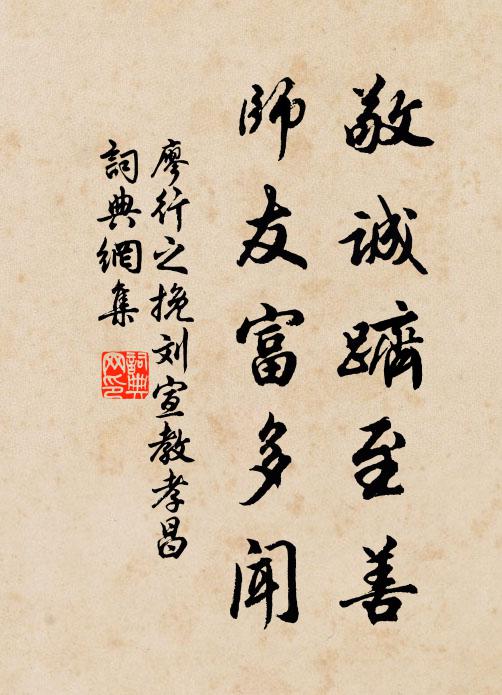 敬诚跻至善
師友富多聞
廖行之挽刘宣教孝昌
詞典網集
詞典网印